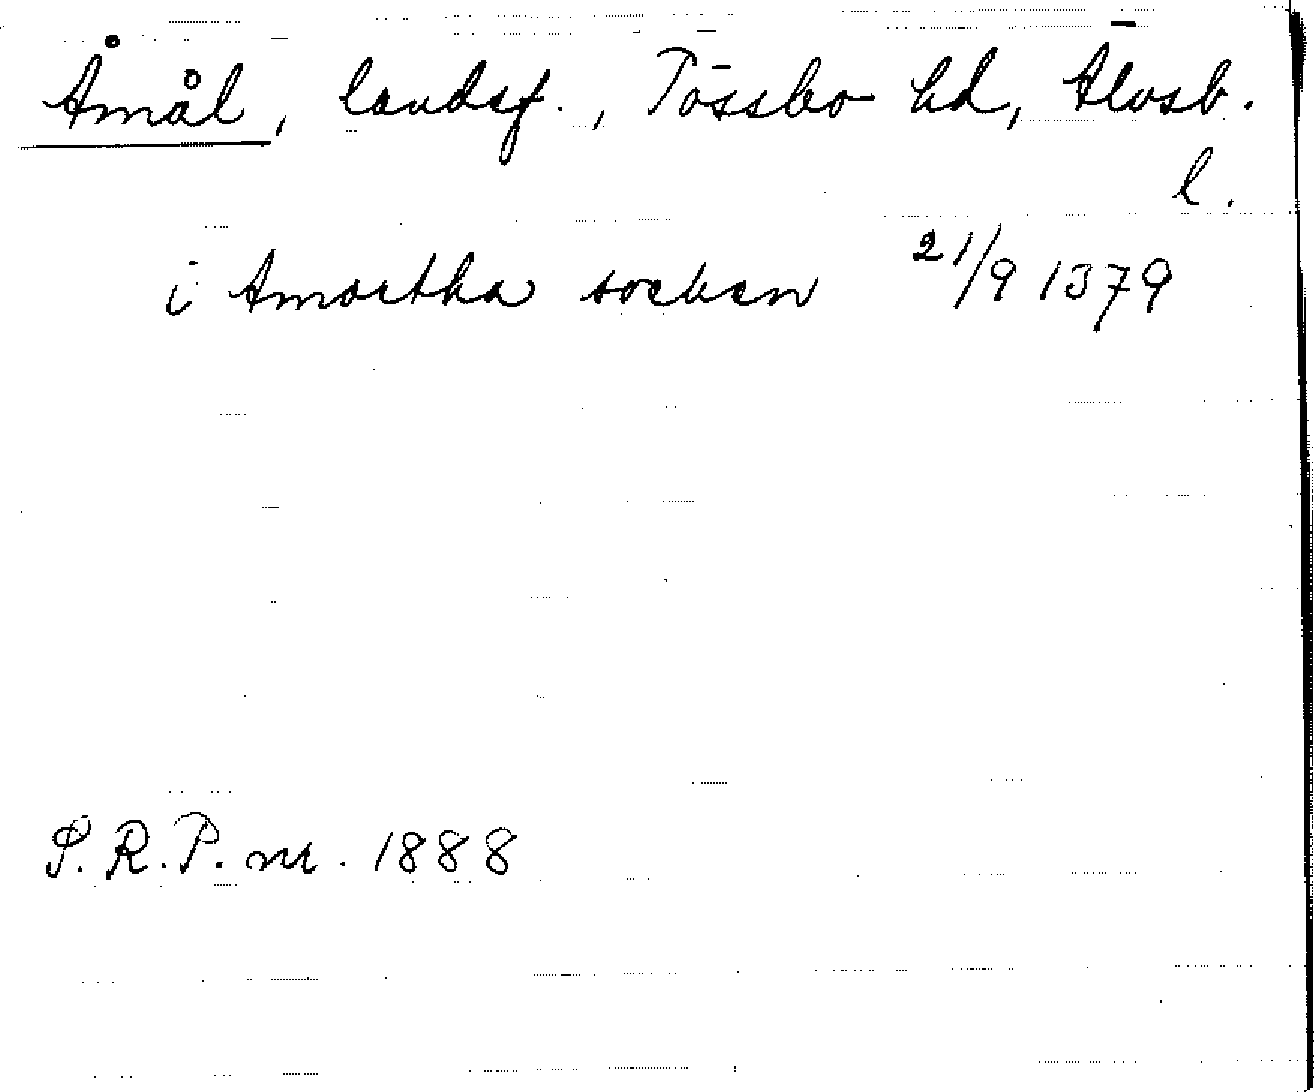 Åmål, landsf., Tössbo hd, Älvsb.
l.
i Amortha socken 21/9 1379
S.R.P. nr. 1888